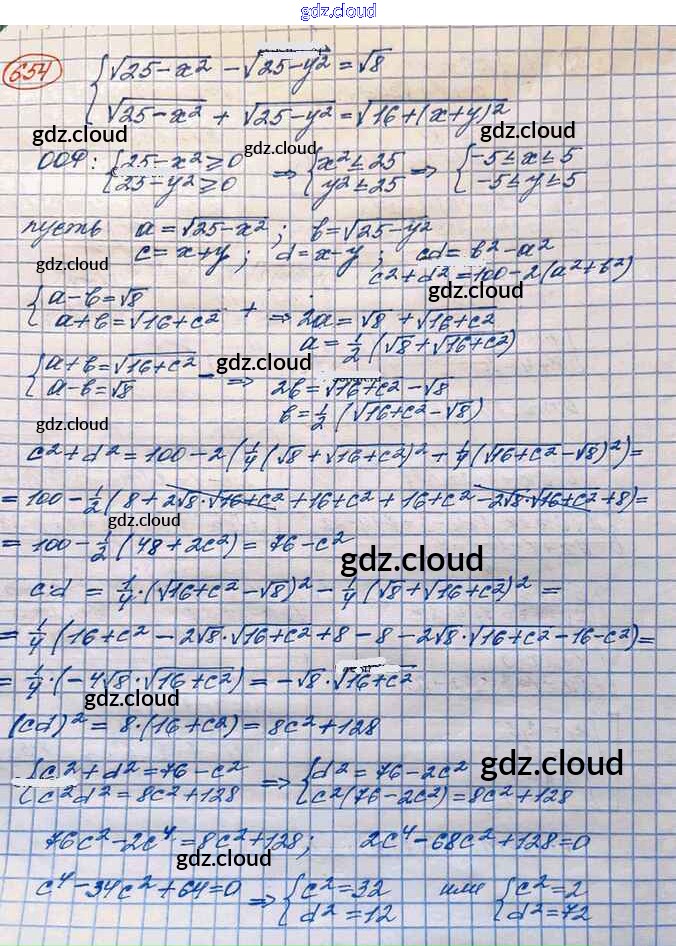 gdz.cloud
654 {√25-x² - √25-y² = √8
{√25-x² + √25-y² = √16+(x+y)²
gdz.cloud gdz.cloud
ООУ: {25-x² ≥ 0 ⇒ {x² ≤ 25 ⇒ {-5 ≤ x ≤ 5
{25-y² ≥ 0 {y² ≤ 25 {-5 ≤ y ≤ 5
пусть a = √25-x² ; b = √25-y²
c = x+y ; d = x-y ; cd = b²-a²
gdz.cloud c²+d² = 100-2(a²+b²)
gdz.cloud
{a-b = √8
{a+b = √16+c² + ⇒ 2a = √8 + √16+c²
a = 1/2 (√8 + √16+c²)
{a+b = √16+c² - gdz.cloud
{a-b = √8 ⇒ 2b = √16+c² - √8
b = 1/2 (√16+c² - √8)
gdz.cloud
c²+d² = 100-2(1/4(√8+√16+c²)² + 1/4(√16+c²-√8)²) =
= 100 - 1/2(8+2√8·√16+c²+16+c²+16+c²-2√8·√16+c²+8) =
gdz.cloud
= 100 - 1/2(48+2c²) = 76-c²
gdz.cloud
c·d = 1/4·(√16+c²-√8)² - 1/4(√8+√16+c²)² =
gdz.cloud
= 1/4(16+c²-2√8·√16+c²+8-8-2√8·√16+c²-16-c²) =
= 1/4·(-4√8·√16+c²) = -√8·√16+c²
gdz.cloud
(cd)² = 8·(16+c²) = 8c²+128
{c²+d² = 76-c² ⇒ {d² = 76-2c² gdz.cloud
{c²d² = 8c²+128 {c²(76-2c²) = 8c²+128
76c²-2c⁴ = 8c²+128; 2c⁴-68c²+128=0
gdz.cloud
c⁴-34c²+64=0 ⇒ {c²=32 или {c²=2
{d²=12 {d²=72